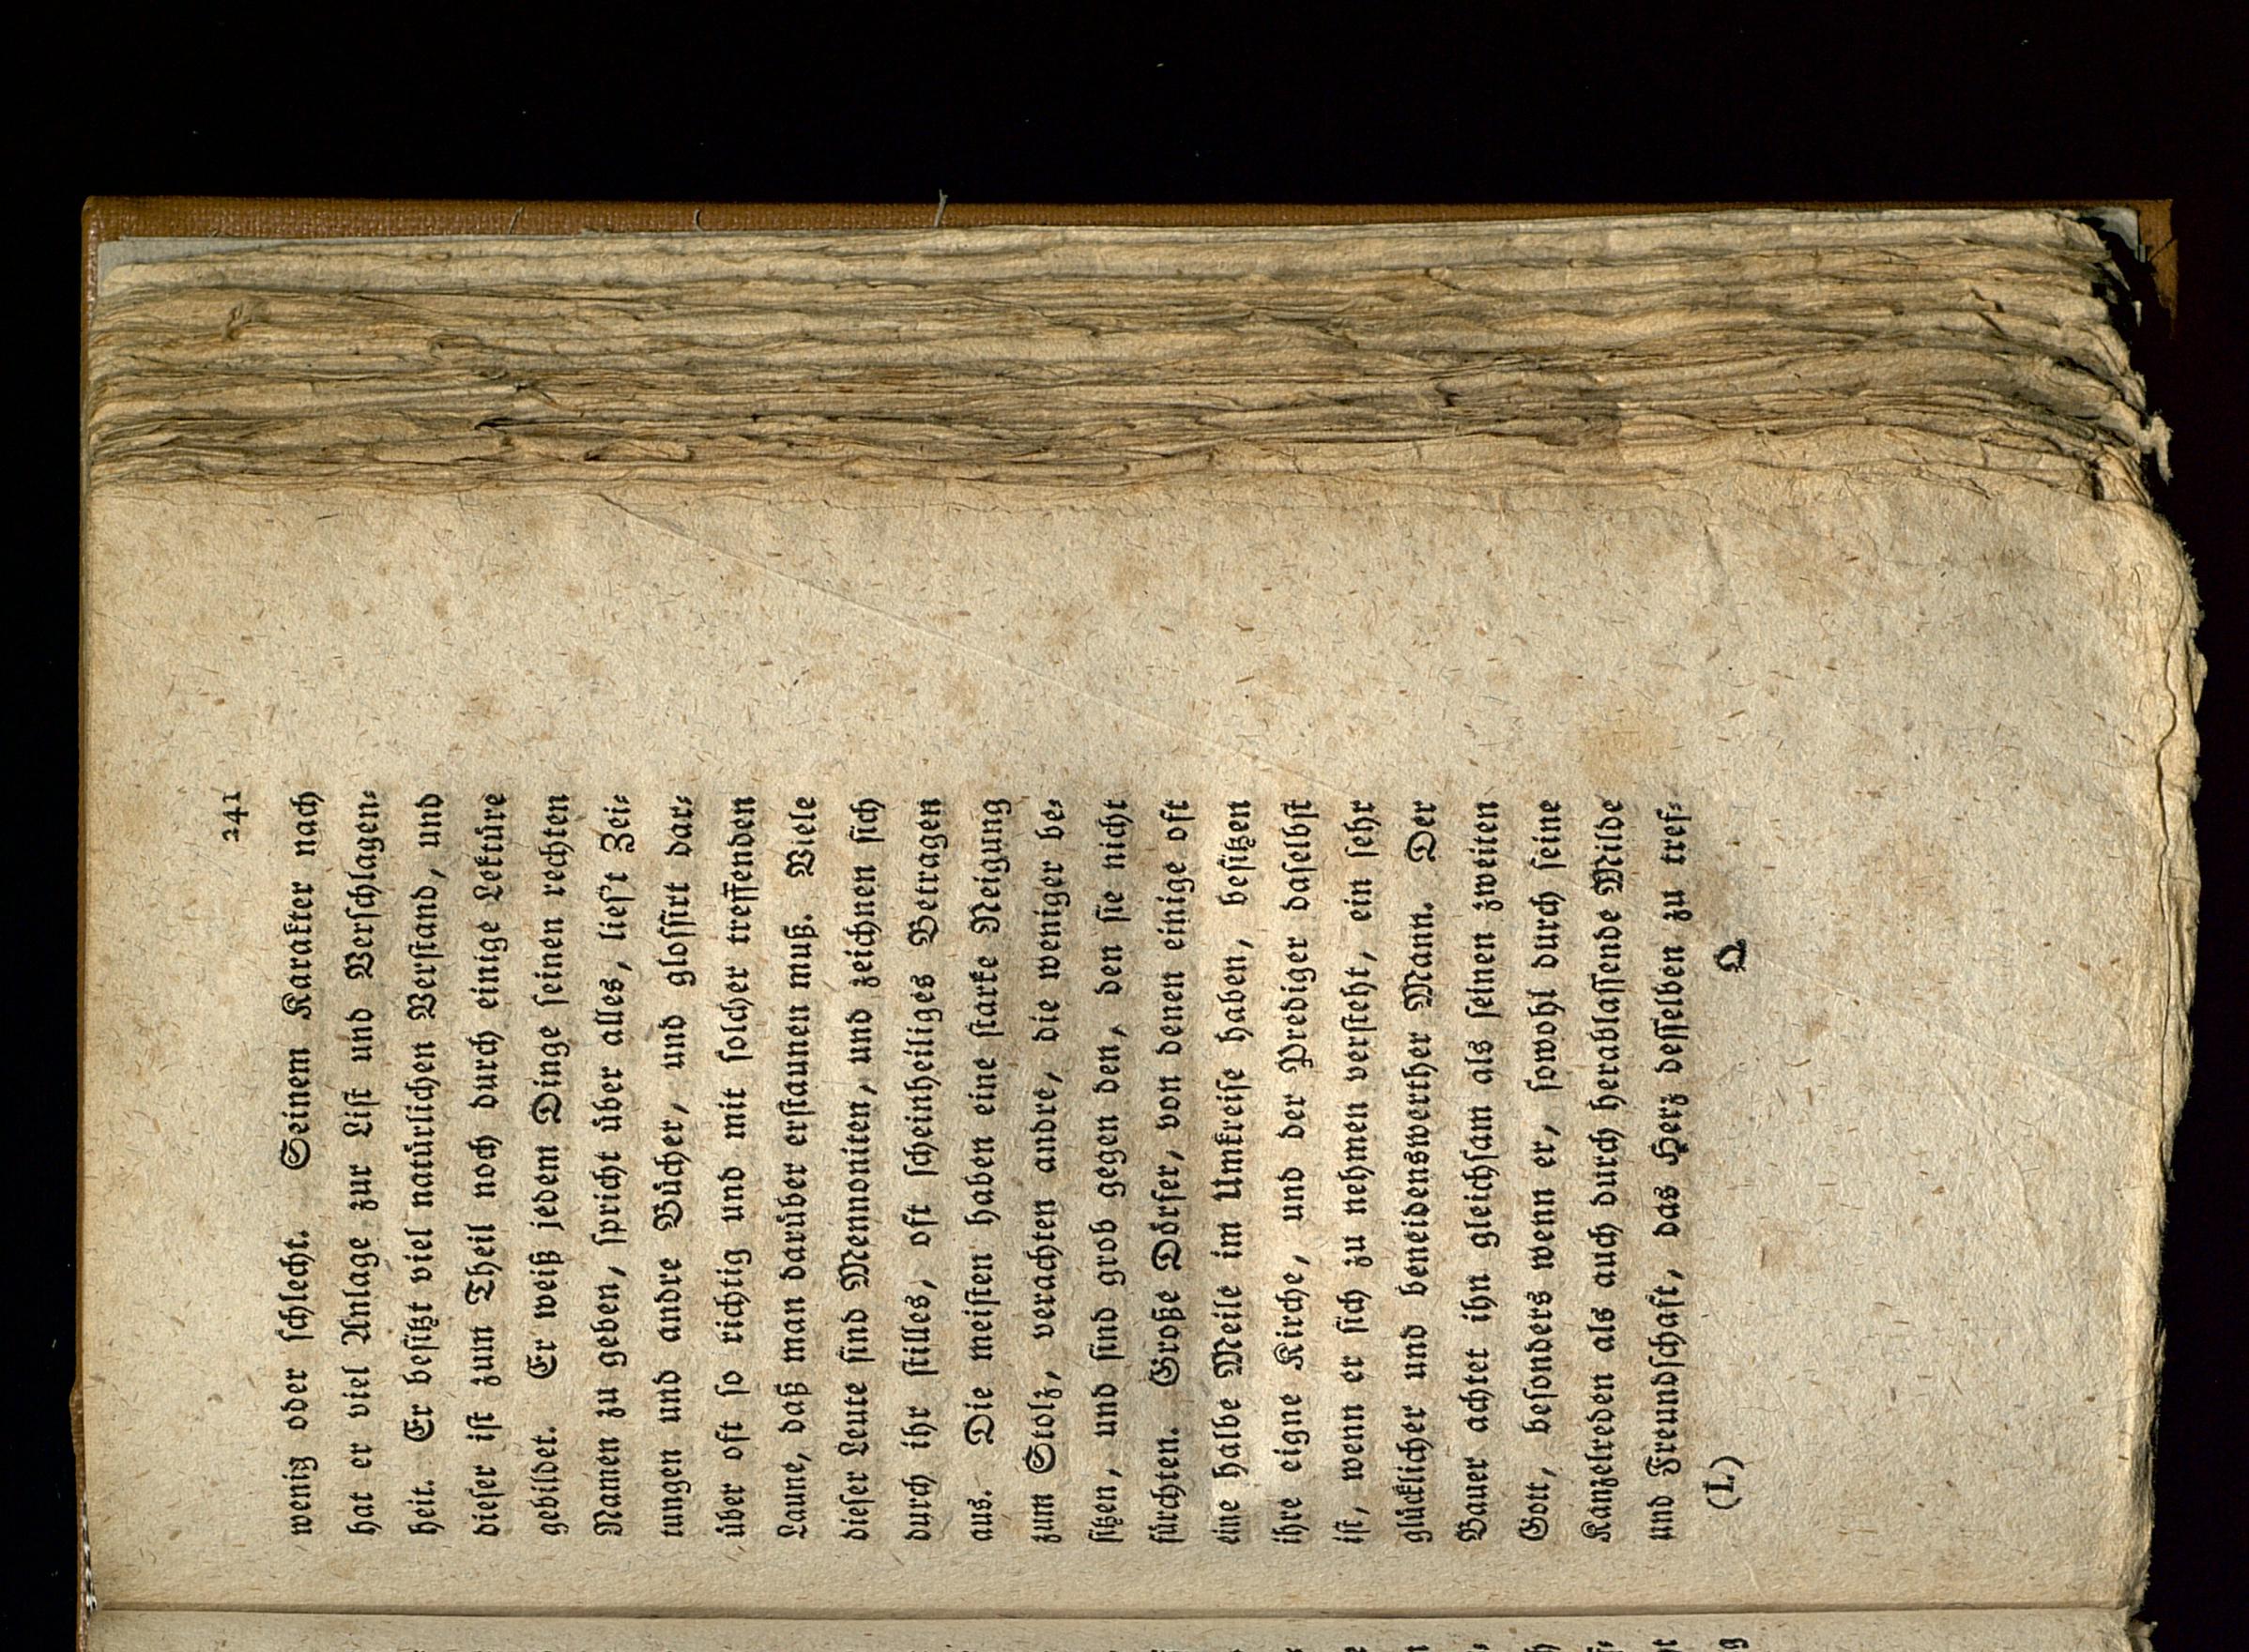 241
wenig oder ſchlecht. Seinem Karakter nach
hat er viel Anlage zur Liſt und Verſchlagen⸗
heit. Er beſitzt viel natürlichen Verſtand, und
dieſer iſt zum Theil noch durch einige Lektüre
gebildet. Er weiß jedem Dinge ſeinen rechten
Namen zu geben, ſpricht über alles, lieſ't Zei⸗
tungen und andre Bücher, und gloſſirt dar⸗
über oft ſo richtig und mit ſolcher treffenden
Laune, daß man darüber erſtaunen muß. Viele
dieſer Leute ſind Mennoniten, und zeichnen ſich
durch ihr ſtilles, oft ſcheinheiliges Betragen
aus. Die meiſten haben eine ſtarke Neigung
zum Stolz, verachten andre, die weniger be⸗
ſitzen, und ſind grob gegen den, den ſie nicht
fürchten. Große Dörfer, von denen einige oft
eine halbe Meile im Umkreiſe haben, beſitzen
ihre eigne Kirche, und der Prediger daſelbſt
iſt, wenn er ſich zu nehmen verſteht, ein ſehr
glücklicher und beneidenswerther Mann. Der
Bauer achtet ihn gleichſam als ſeinen zweiten
Gott, beſonders wenn er, ſowohl durch ſeine
Kanzelreden als auch durch herablaſſende Milde
und Freundſchaft, das Herz deſſelben zu tref⸗
(I.) Q